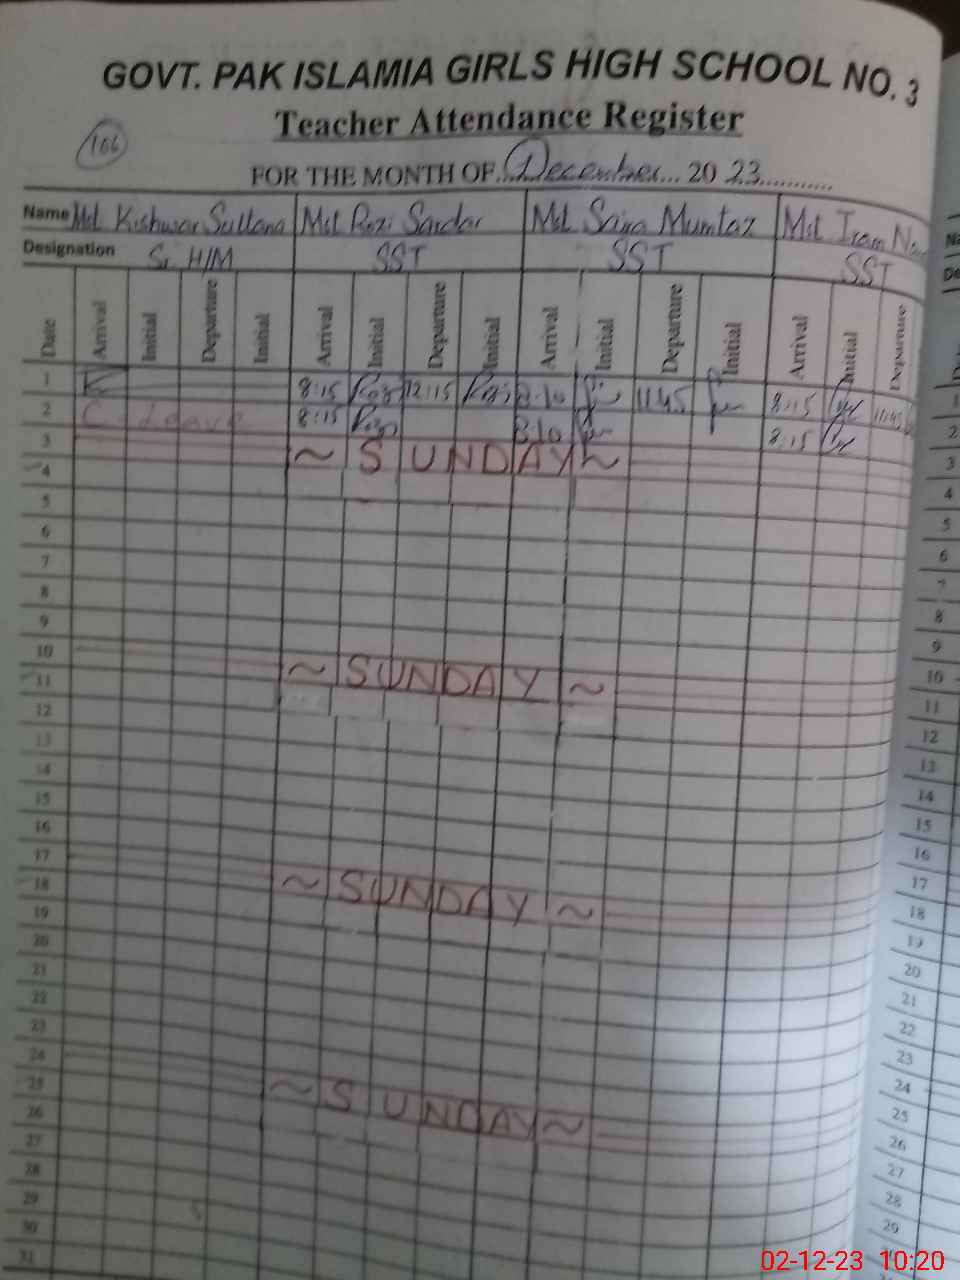 GOVT. PAK ISLAMIA GIRLS HIGH SCHOOL NO. 3
Teacher Attendance Register
106
FOR THE MONTH OF December 2023
Name Mst Kishwar Sultana Mst Rozi Sardar Mst Saira Mumtaz Mst Iram
Designation Sr. H/M SST SST SST
Date Arrival Initial Departure Initial Arrival Initial Departure Initial Arrival Initial Departure Initial Arrival Initial Departure
1 8:15 12:15 8:10 11:45 8:15 11:45 1
2 C-Leave 8:15 8:10 8:15 2
3 ~ SUNDAY ~ 3
4 4
5 5
6 6
7 7
8 8
9 9
10 ~ SUNDAY ~ 10
11 11
12 12
13 13
14 14
15 15
16 16
17 ~ SUNDAY ~ 17
18 18
19 19
20 20
21 21
22 22
23 23
24 ~ SUNDAY ~ 24
25 25
26 26
27 27
28 28
29 29
30
31
02-12-23 10:20